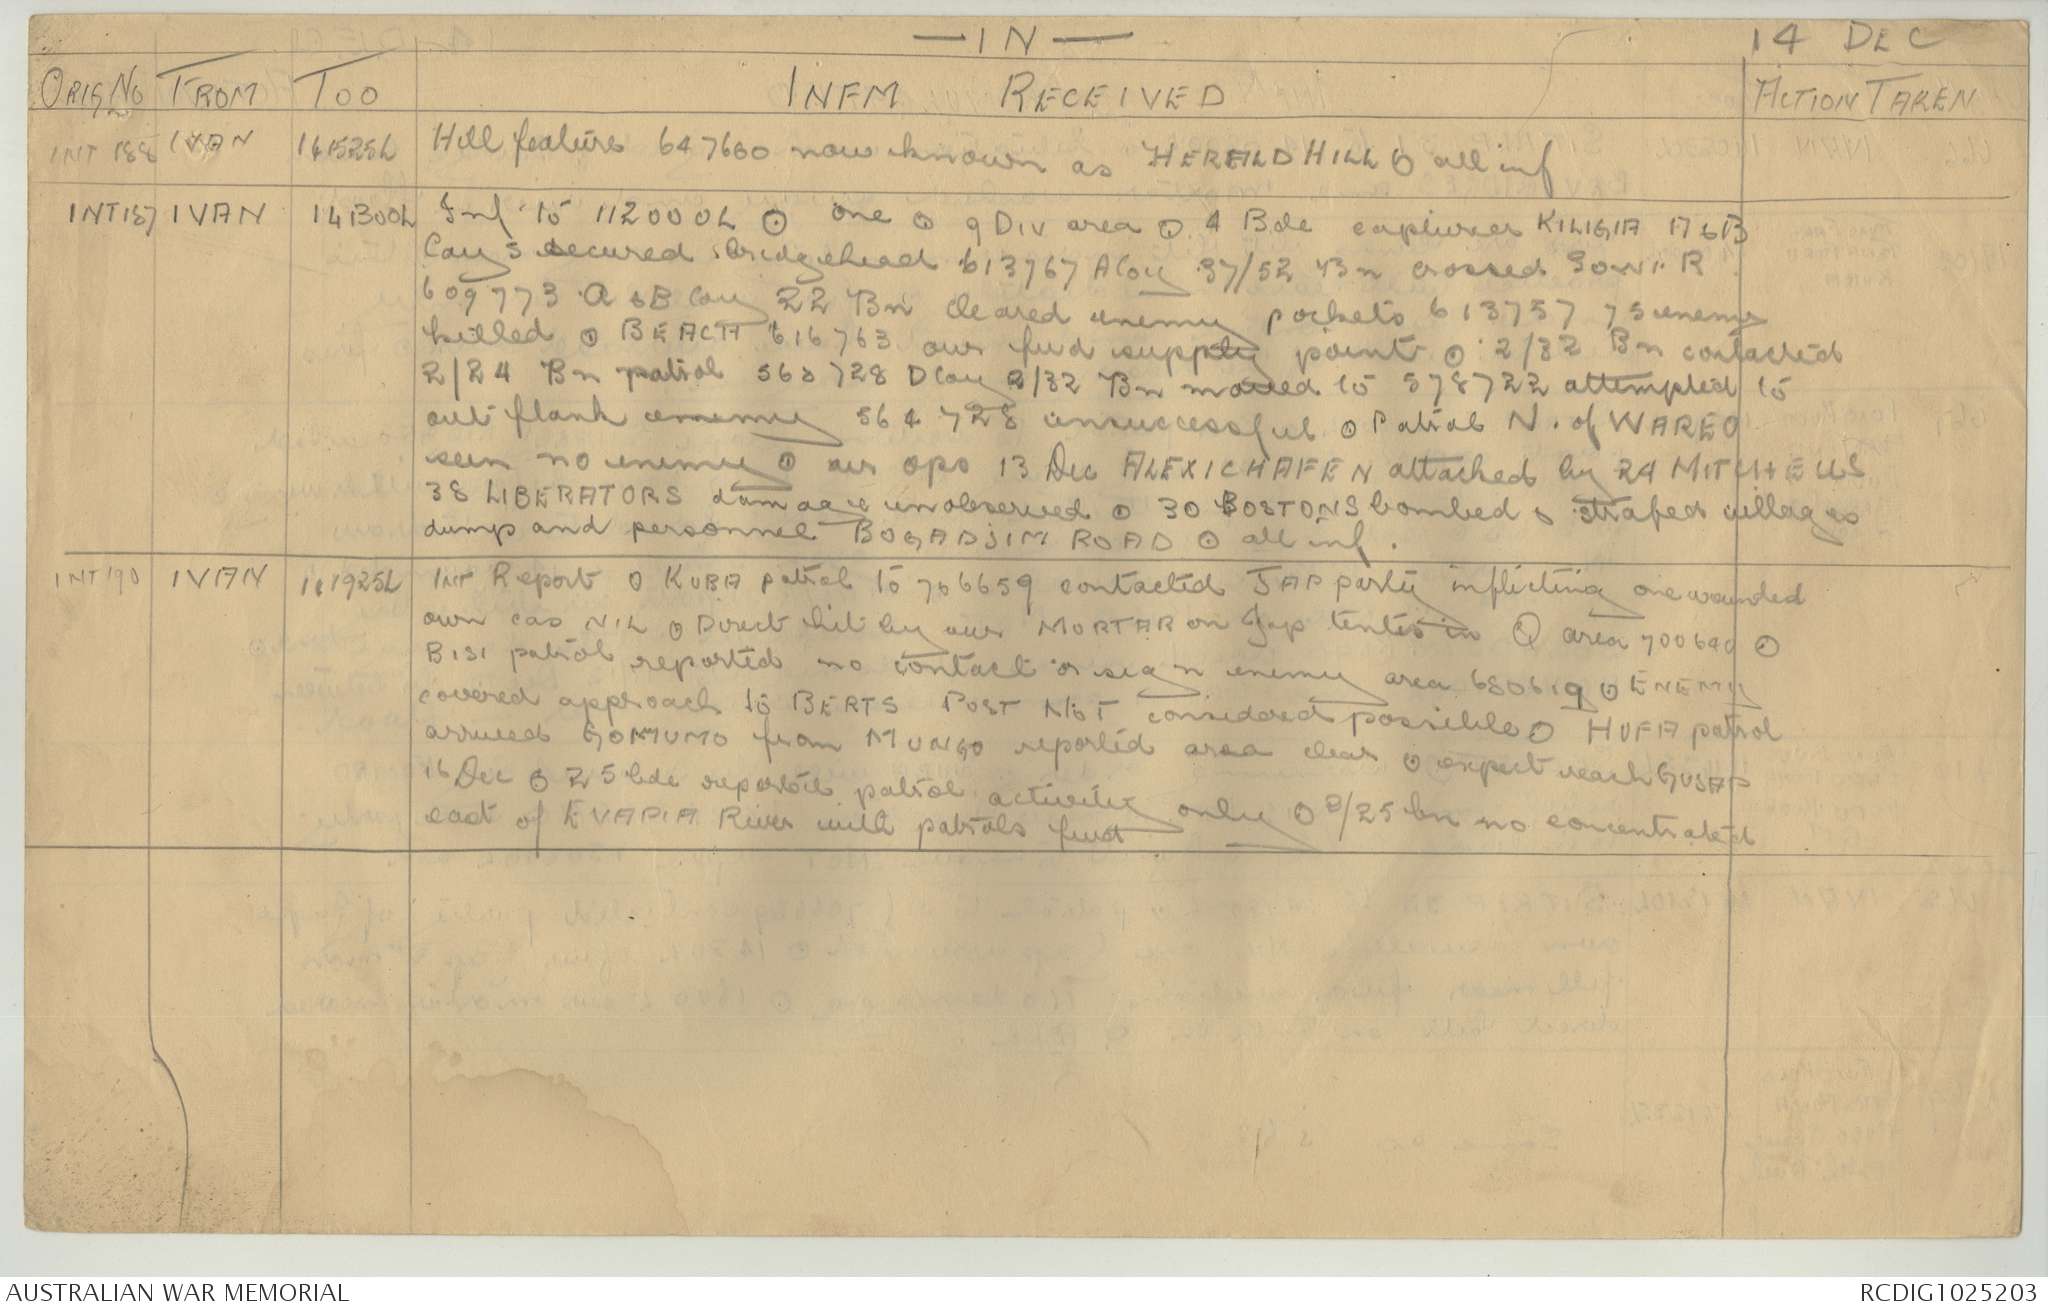 — IN —
14 DEC
ORIG No FROM TOO INFM RECEIVED ACTION TAKEN
INT 188 IVAN 141525L Hill feature 647660 now known as HERALD HILL ⊙ all inf
INT187 IVAN 141300L Inf to 112000L ⊙ one ⊙ 9 Div area ⊙ 4 Bde captures KILIGIA A & B
Coys secured bridgehead 613767 A Coy 37/52 Bn crossed SOWI R
609773 A & B Coy 22 Bn cleared enemy pockets 613757 75 enemy
killed ⊙ BEACH 616763 our fwd supply point ⊙ 2/32 Bn contacted
2/24 Bn patrol 563728 D Coy 2/32 Bn moved to 578722 attempted to
out flank enemy 564728 unsuccessful ⊙ Patrol N. of WAREO
seen no enemy ⊙ air ops 13 Dec ALEXICHAFEN attacked by 24 MITCHELLS
38 LIBERATORS damage unobserved ⊙ 30 BOSTONS bombed & strafed villages
dump and personnel BOGADJIM ROAD ⊙ all inf.
INT190 IVAN 141925L INT Report ⊙ KUBA patrol to 706659 contacted JAP party inflicting one wounded
own cas NIL ⊙ Direct hit by our MORTAR on Jap tents in Q area 700640 ⊙
BISI patrol reported no contact or sign enemy area 680619 ⊙ ENEMY
covered approach to BERTS POST NOT considered possible ⊙ HUFA patrol
arrived GOMUMO from MUNGO reported area clear ⊙ expect reach GUSAP
16 Dec ⊙ 25 bde reports patrol activity only ⊙ 2/25 bn no concentrated
east of EVAPIA River with patrols fwd
AUSTRALIAN WAR MEMORIAL
RCDIG1025203